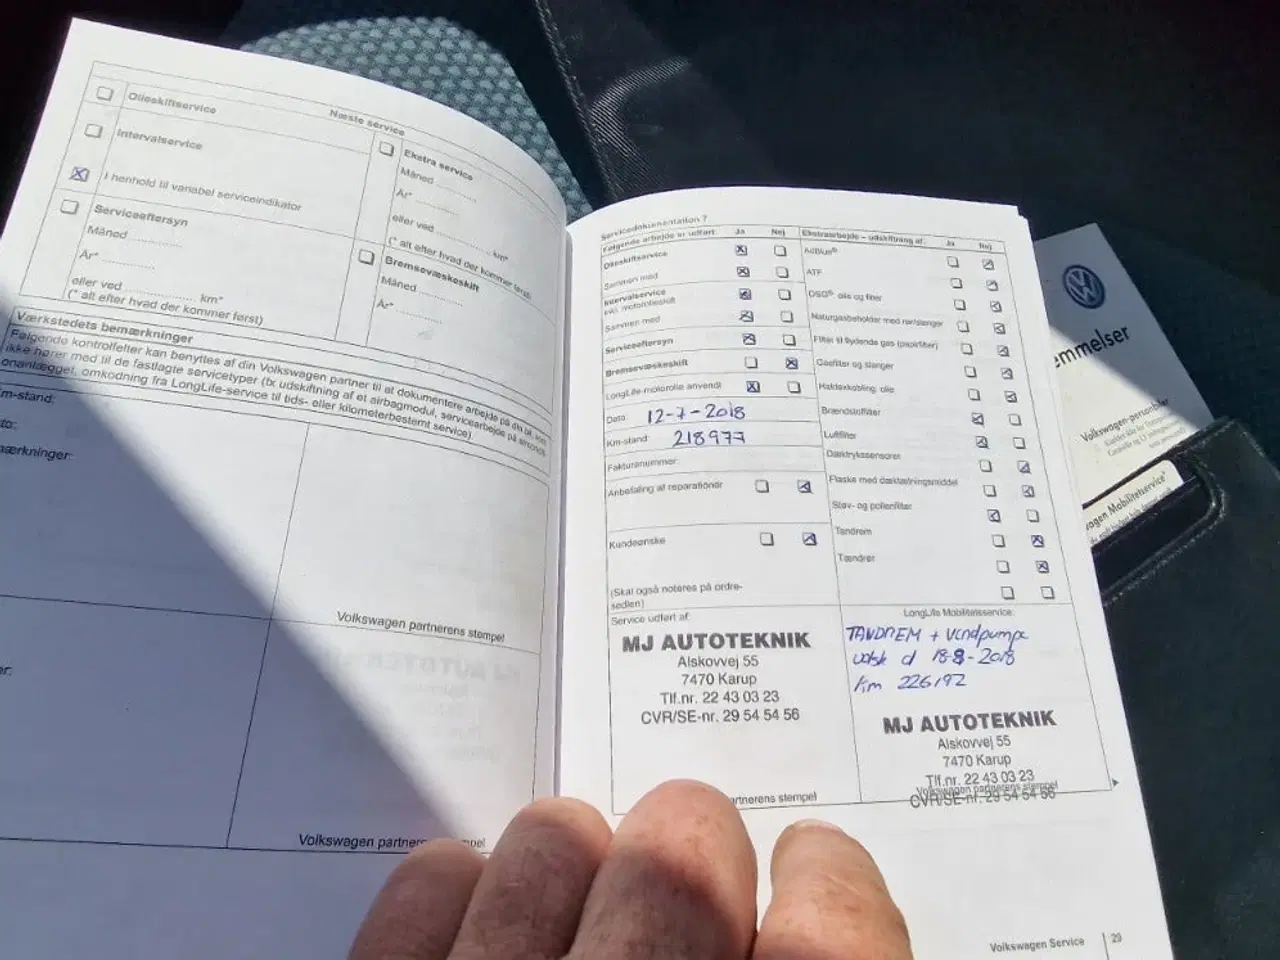 Næste service
Olieskiftservice
Intervalservice
I henhold til variabel serviceindikator
Serviceeftersyn
Måned
År*
eller ved km*
(* alt efter hvad der kommer først)
Ekstra service
Måned
År*
eller ved km*
(* alt efter hvad der kommer først)
Bremsevæskeskift
Måned
År*
Værkstedets bemærkninger
Følgende kontrolfelter kan benyttes af din Volkswagen partner til at dokumentere arbejde på din bil, som
ikke hører med til de fastlagte servicetyper (fx udskiftning af et airbagmodul, servicearbejde på
omkodning fra LongLife-service til tids- eller kilometerbestemt service).
m-stand:
ærkninger:
Volkswagen partnerens stempel
Volkswagen partner
Servicedokumentation 7
Følgende arbejde er udført: Ja Nej
Olieskiftservice
Sammen med
Intervalservice
inkl. motorolieskift
Sammen med
Serviceeftersyn
Bremsevæskeskift
LongLife-motorolie anvendt
Dato: 12-7-2018
Km-stand: 218977
Fakturanummer:
Anbefaling af reparationer
Kundeønske
(Skal også noteres på ordre-
sedlen)
Service udført af:
MJ AUTOTEKNIK
Alskovvej 55
7470 Karup
Tlf.nr. 22 43 03 23
CVR/SE-nr. 29 54 54 56
artnerens stempel
Ekstraarbejde – udskiftning af: Ja Nej
AdBlue®
ATF
DSG®: olie og filter
Naturgasbeholder med rør/slanger
Filter til flydende gas (papirfilter)
Gasfilter og slanger
Haldexkobling: olie
Brændstoffilter
Luftfilter
Dæktrykssensorer
Flaske med dæktætningsmiddel
Støv- og pollenfilter
Tandrem
Tændrør
LongLife Mobilitetsservice:
TANDREM + Vandpumpe
udsk d 18-8-2018
Km 226192
MJ AUTOTEKNIK
Alskovvej 55
7470 Karup
Tlf.nr. 22 43 03 23
Volkswagen partnerens stempel
CVR/SE-nr. 29 54 54 56
Volkswagen Service 29
emmelser
Volkswagen-personbiler
agen Mobilitetsservice*